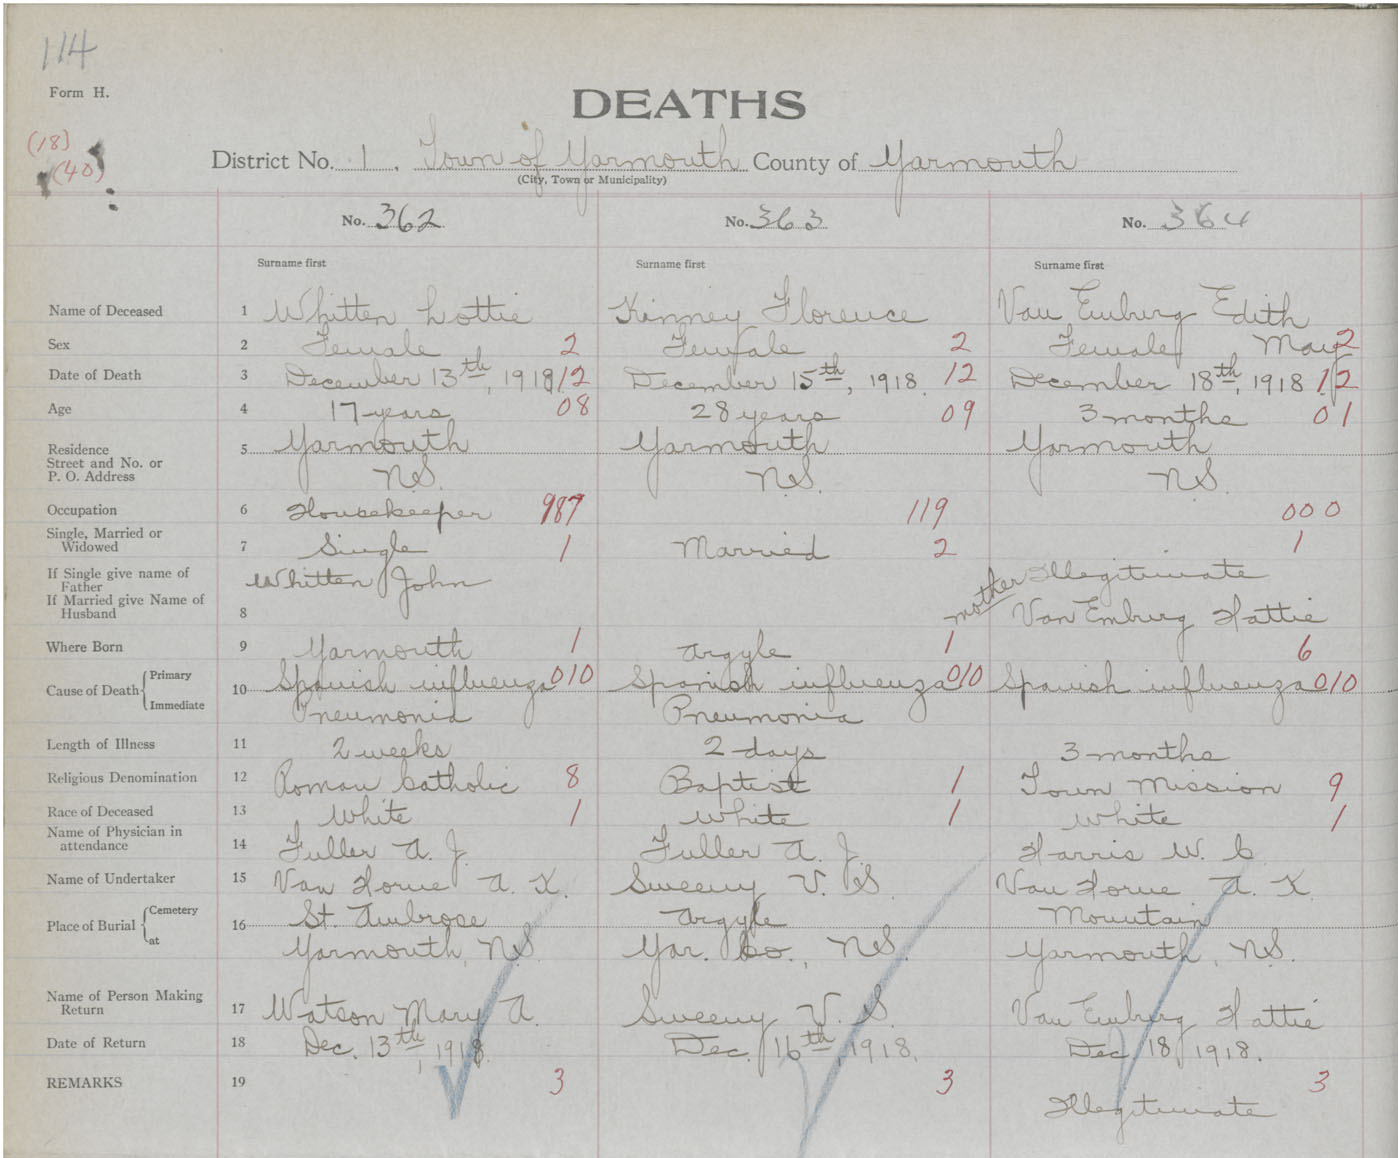 114
Form H.
DEATHS
(18)
(40)
District No. 1, Town of Yarmouth County of Yarmouth
(City, Town or Municipality)
No. 362 No. 363 No. 364
Surname first Surname first Surname first
Name of Deceased 1 Whitten Lottie Kinney Florence Van Emburg Edith
Sex 2 Female 2 Female 2 Female May 2
Date of Death 3 December 13th, 1918 12 December 15th, 1918. 12 December 18th, 1918 12
Age 4 17 years 08 28 years 09 3 months 01
Residence 5 Yarmouth Yarmouth Yarmouth
Street and No. or
P. O. Address N.S. N.S. N.S.
Occupation 6 Housekeeper 987 119 000
Single, Married or
Widowed 7 Single 1 Married 2 1
If Single give name of
Father Whitten John mother Illegitimate
If Married give Name of
Husband 8 Van Emburg Hattie
Where Born 9 Yarmouth 1 Argyle 1 6
Cause of Death Primary 10 Spanish influenza 010 Spanish influenza 010 Spanish influenza 010
Immediate Pneumonia Pneumonia
Length of Illness 11 2 weeks 2 days 3 months
Religious Denomination 12 Roman Catholic 8 Baptist 1 Town Mission 9
Race of Deceased 13 White 1 White 1 White 1
Name of Physician in
attendance 14 Fuller A. J. Fuller A. J. Harris W. C.
Name of Undertaker 15 Van Horne A. K. Sweeny V. S. Van Horne A. K.
Place of Burial Cemetery 16 St. Ambrose Argyle Mountain
at Yarmouth, N.S. Yar. Co., N.S. Yarmouth, N.S.
Name of Person Making
Return 17 Watson Mary A. Sweeny V. S. Van Emburg Hattie
Date of Return 18 Dec. 13th, 1918. Dec. 16th, 1918. Dec. 18, 1918.
REMARKS 19 3 3 3
Illegitimate